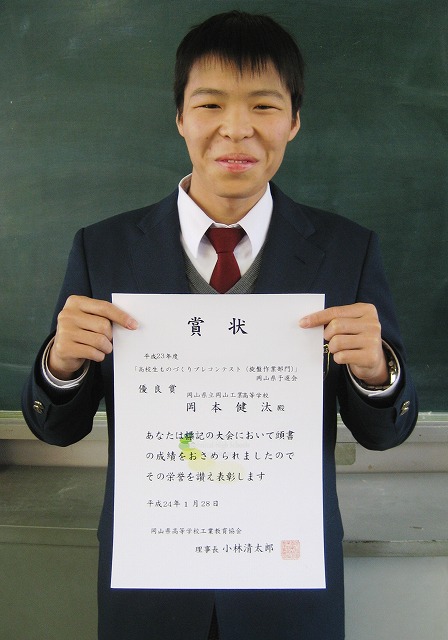 賞状
平成23年度
「高校生ものづくりプレコンテスト（旋盤作業部門）」
岡山県予選会
優良賞
岡山県立岡山工業高等学校
岡本健汰 殿
あなたは標記の大会において頭書
の成績をおさめられましたので
その栄誉を讃え表彰します
平成24年1月28日
岡山県高等学校工業教育協会
理事長 小林清太郎